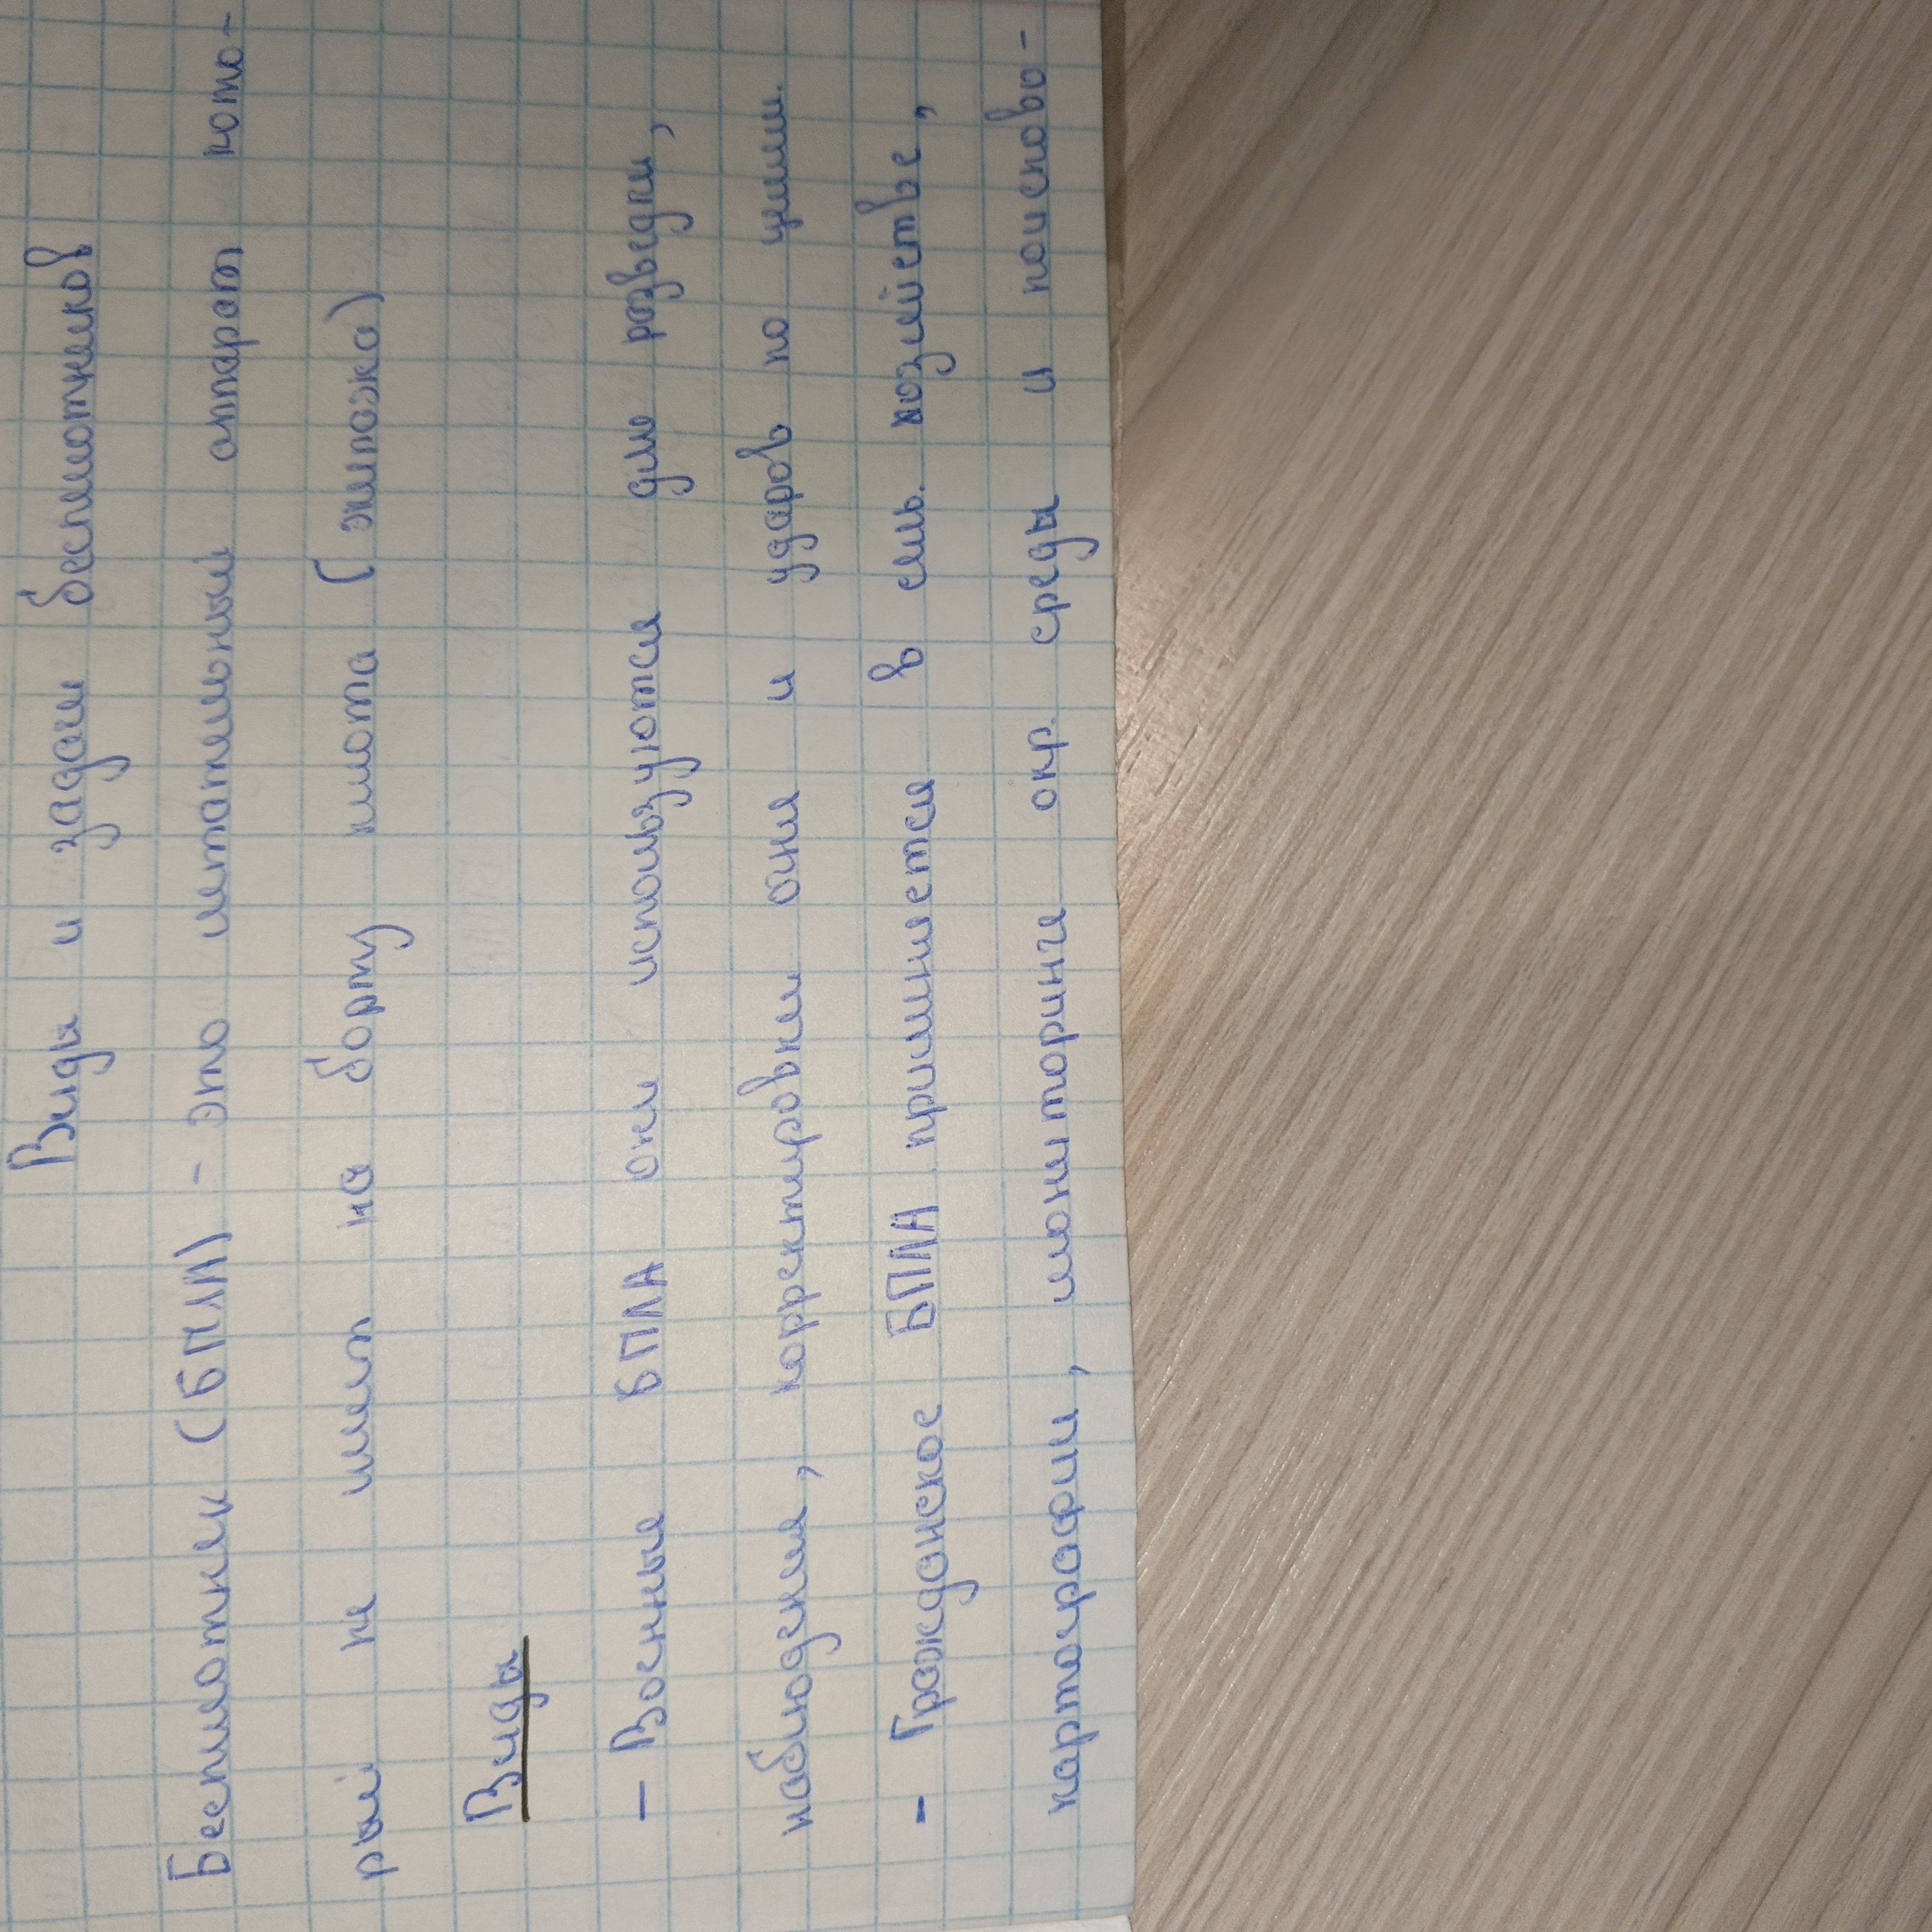 Виды и задачи беспилотников
Беспилотник (БПЛА) - это летательный аппарат кото-
рый не имел на борту пилота (экипажа)
Виды
- Военные БПЛА они используются для разведки,
наблюдения, корректировки огня и ударов по целям.
- Гражданское БПЛА применяется в сель. хозяйстве,
картографии, мониторинге окр. среды и поисково-